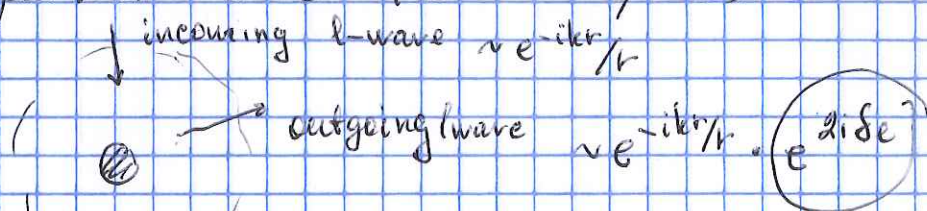 incoming l-wave ~ e^{-ikr}/r
outgoing l wave ~ e^{-ikr}/r · e^{2iδ_l}